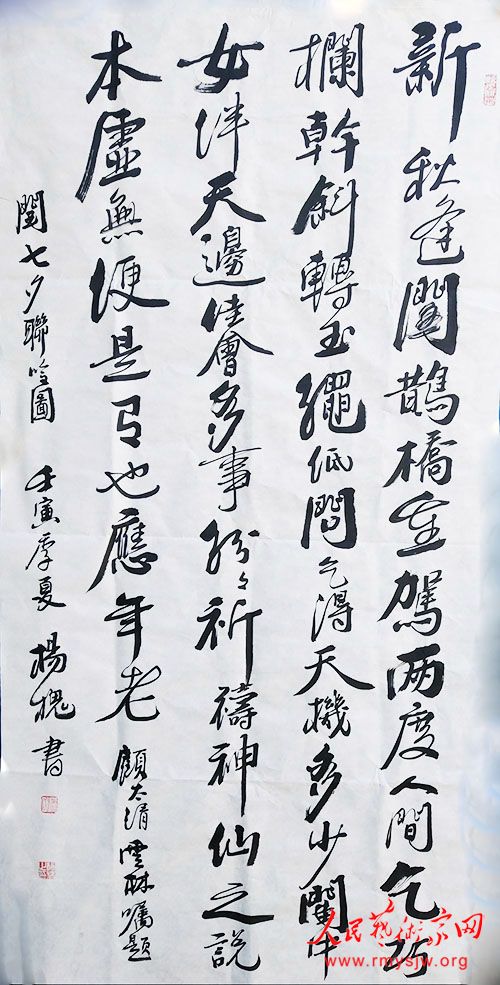 新秋逢閏鵲橋重駕两度人間乞巧
欄幹斜轉玉繩低問乞得天機多少閨中
女伴天邊佳會多事紛々祈禱神仙之説
本虛無便是有也應年老 顧太清雲林囑題
閏七夕聯吟圖 壬寅季夏 楊槐書
人民藝術家网
www.rmysjw.org